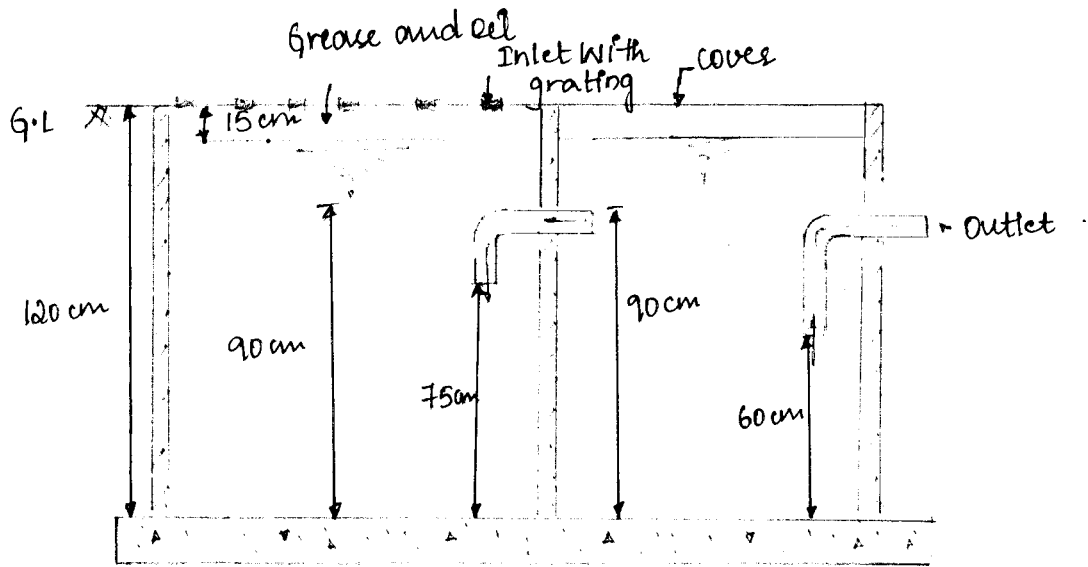 Grease and oil
Inlet With
grating
cover
G.L
15 cm
Outlet
120 cm
90 cm
90 cm
75cm
60 cm